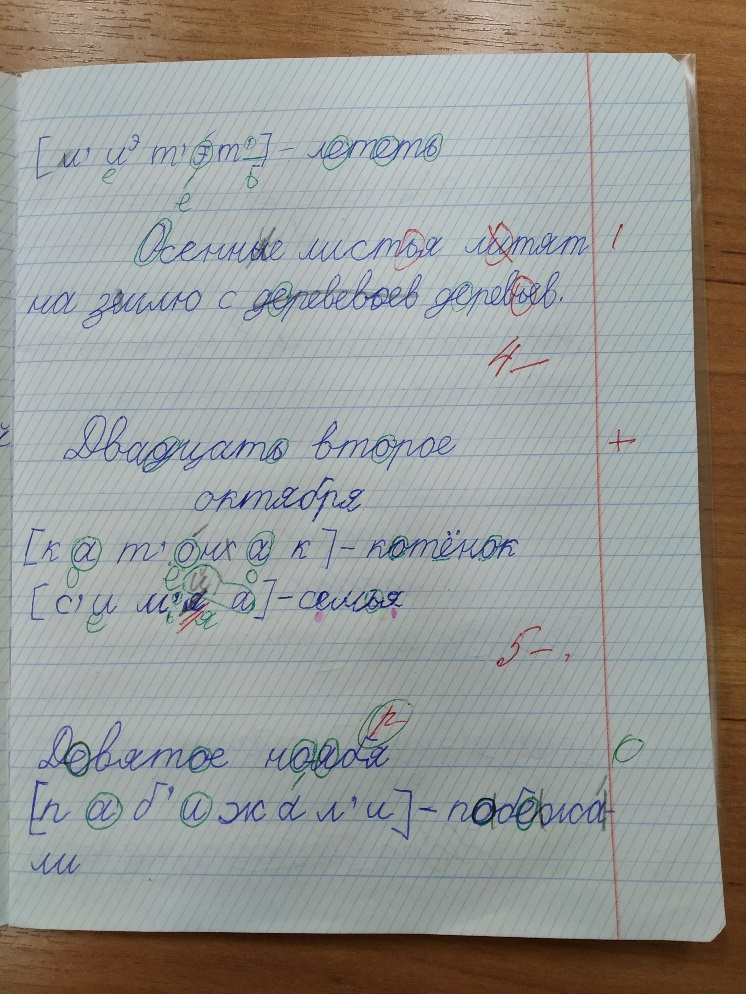 [л' иэ т' э́ т ь] – лететь
Осенние листья литят
на землю с деревевьев деревьев.
4–
Двадцать второе
октября
[к а т' о́ н' а к] – котёнок
[с' и м' й а] – семья
5–.
Девятое ноября
[п а б' и ж а́ л' и] – побежа-
ли